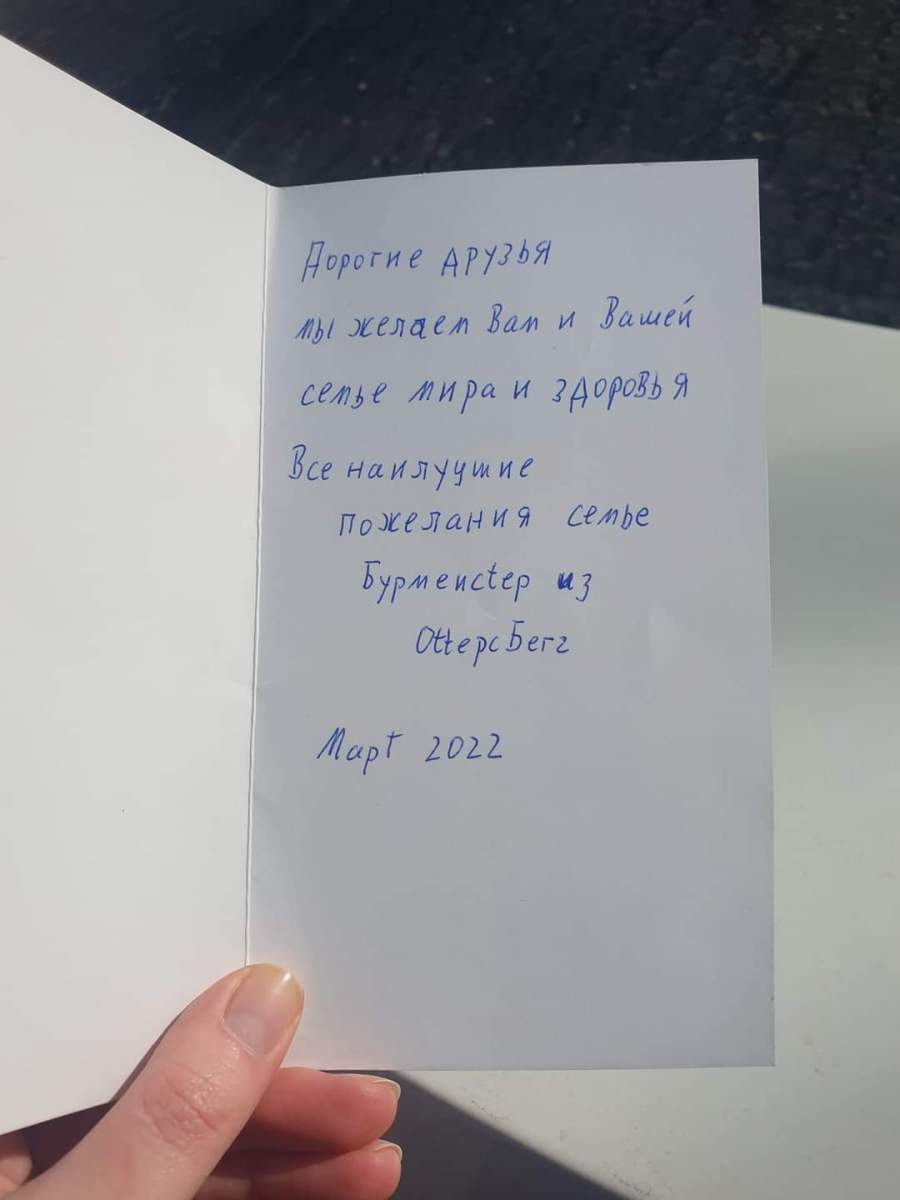 Дорогие друзья
мы желаем Вам и Вашей
семье мира и здоровья
Все наилуцшие
пожелания семье
Бурмеистер из
Оttерсбегг
Март 2022